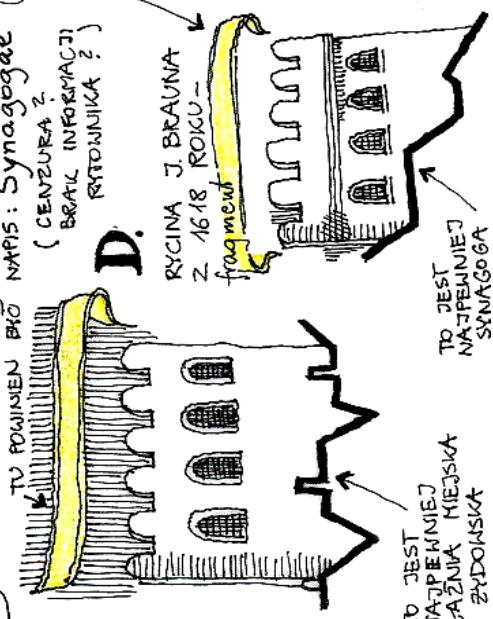 TU POWINIEN BYĆ NAPIS: Synagogae
( CENZURA ?
BRAK INFORMACJI
RYTOWNIKA ? )
D.
RYCINA J. BRAUNA
Z 1618 ROKU-
fragment
TO JEST
NAJPEWNIEJ
SYNAGOGA
JEST
MIEJSKA
ŻYDOWSKA